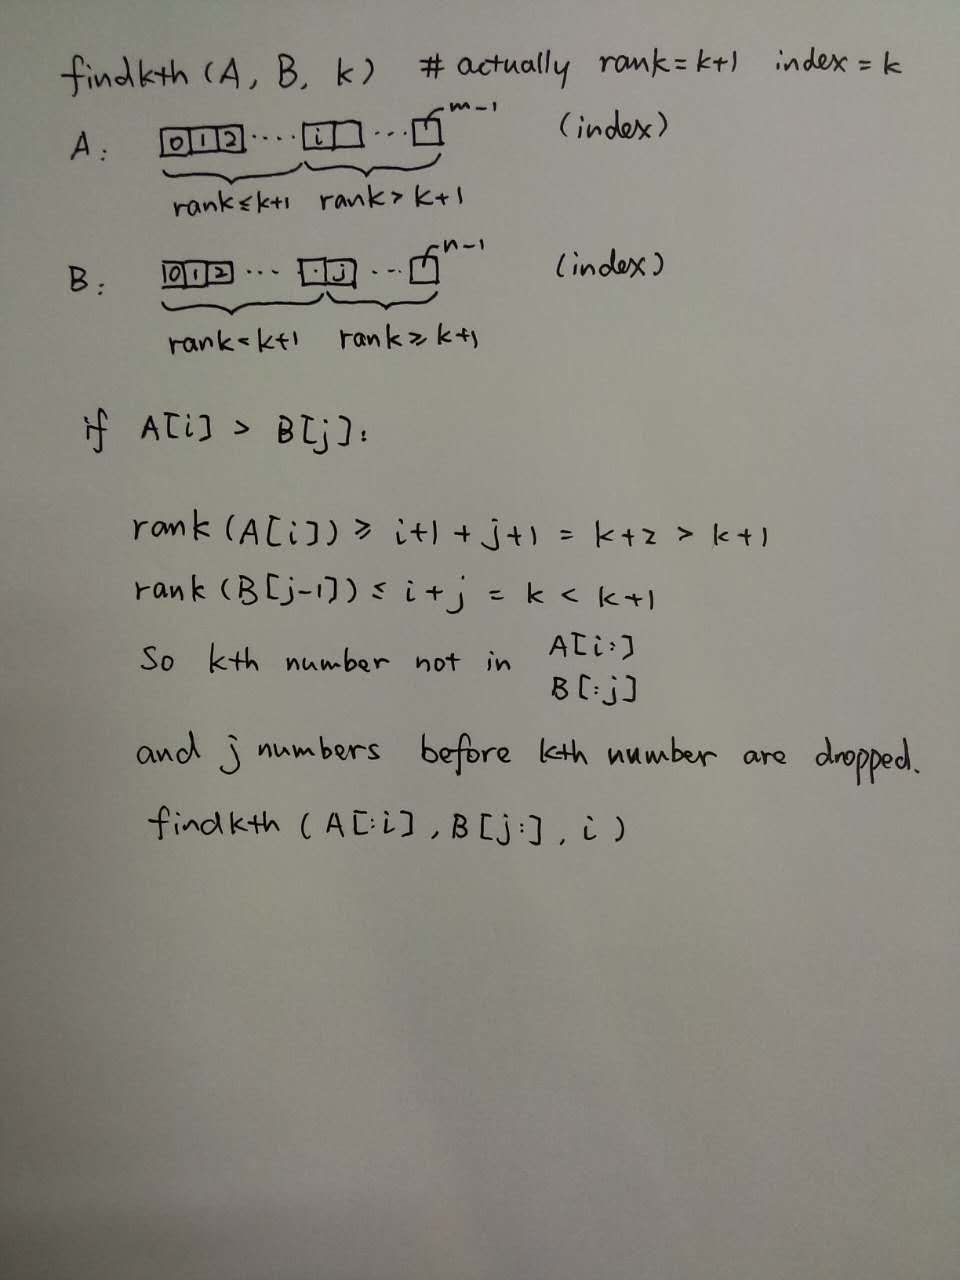 findkth (A, B, k) # actually rank = k+1 index = k
A: 0 1 2 .... i ... m-1 (index)
rank ≤ k+1 rank > k+1
B: 0 1 2 ... . j ... n-1 (index)
rank < k+1 rank ≥ k+1
if A[i] > B[j]:
rank (A[i]) ≥ i+1 + j+1 = k+2 > k+1
rank (B[j-1]) ≤ i + j = k < k+1
So kth number not in A[i:]
B[:j]
and j numbers before kth number are dropped.
findkth (A[:i], B[j:], i)